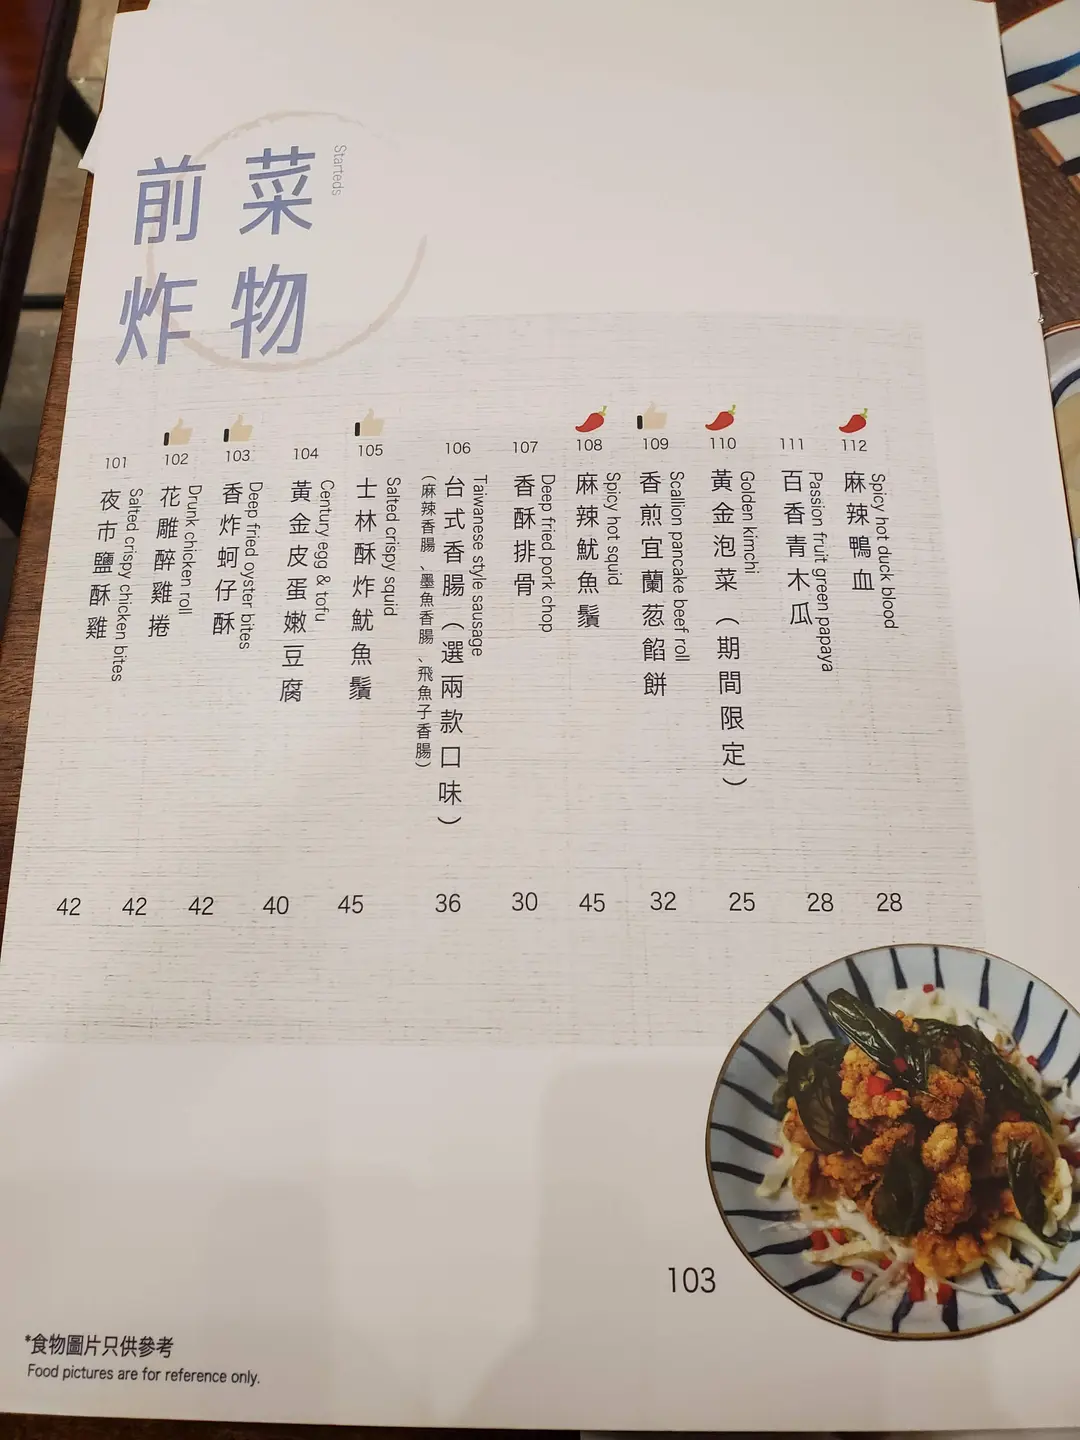 前菜
炸物
Starteds
101
夜市鹽酥雞
Salted crispy chicken bites
42
102
花雕醉雞捲
Drunk chicken roll
42
103
香炸蚵仔酥
Deep fried oyster bites
42
104
黃金皮蛋嫩豆腐
Century egg & tofu
40
105
士林酥炸魷魚鬚
Salted crispy squid
45
106
台式香腸（選兩款口味）
(麻辣香腸、墨魚香腸、飛魚子香腸)
Taiwanese style sausage
36
107
香酥排骨
Deep fried pork chop
30
108
麻辣魷魚鬚
Spicy hot squid
45
109
香煎宜蘭葱餡餅
Scallion pancake beef roll
32
110
黃金泡菜（期間限定）
Golden kimchi
25
111
百香青木瓜
Passion fruit green papaya
28
112
麻辣鴨血
Spicy hot duck blood
28
103
*食物圖片只供參考
Food pictures are for reference only.